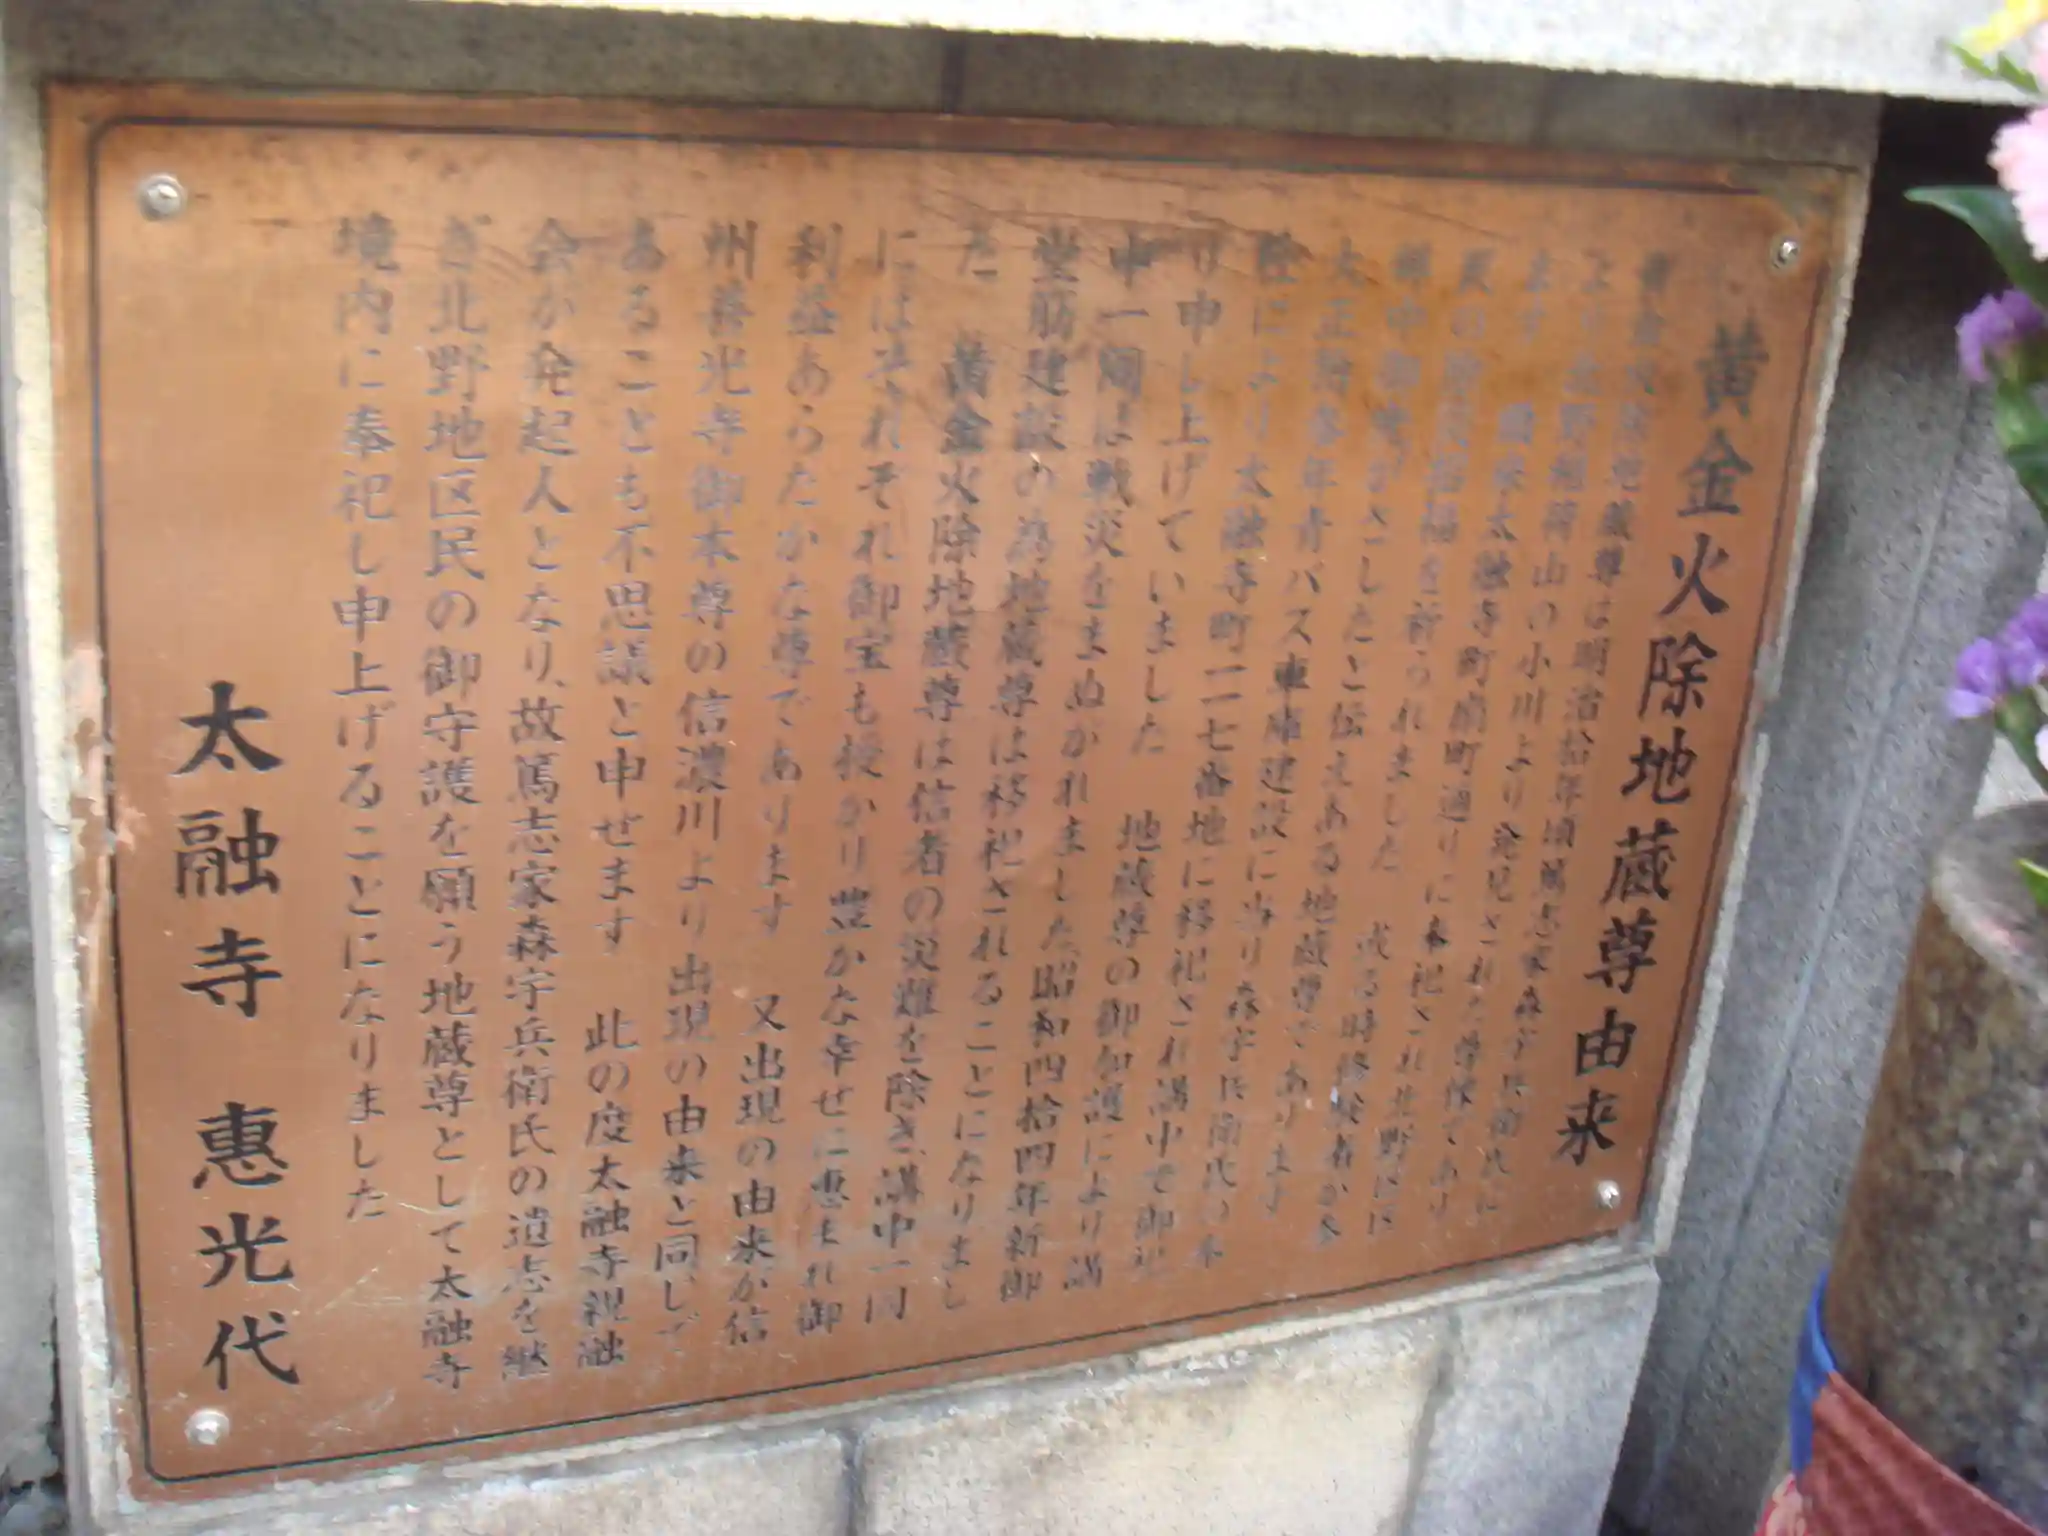 黄金火除地蔵尊由来
黄金火除地蔵尊は明治拾年頃篤志家森宇兵衛氏に
より北野稲荷山の小川より発見された尊像であり
ます
民の除災招福を祈られました
太融寺町扇町通りに奉祀され北野に
したと伝えある地蔵尊であります
大正拾参年青バス車庫建設に当り森宇兵衛氏の
により太融寺町一二七番地に移祀され講中で御祀
り申し上げていました 地蔵尊の御加護により講
中一同は戦災をまぬかれました昭和四拾四年新御
堂筋建設の為地蔵尊は移祀されることになりまし
た 黄金火除地蔵尊は信者の災難を除き、講中一同
にはそれぞれ御宝も授かり豊かな幸せに恵まれ御
利益あらたかな尊であります 又出現の由来が信
州善光寺御本尊の信濃川より出現の由来と同じで
あることも不思議と申せます 此の度太融寺親融
会が発起人となり、故篤志家森宇兵衛氏の遺志を継
ぎ北野地区民の御守護を願う地蔵尊として太融寺
境内に奉祀し申上げることになりました
太融寺 惠光代